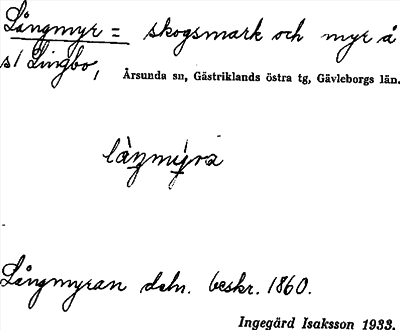 Långmyr = skogsmark och myr å
s/ Lingbo, Årsunda sn, Gästriklands östra tg, Gävleborgs län.
Långmyran dehn. beskr. 1860.
Ingegärd Isaksson 1933.